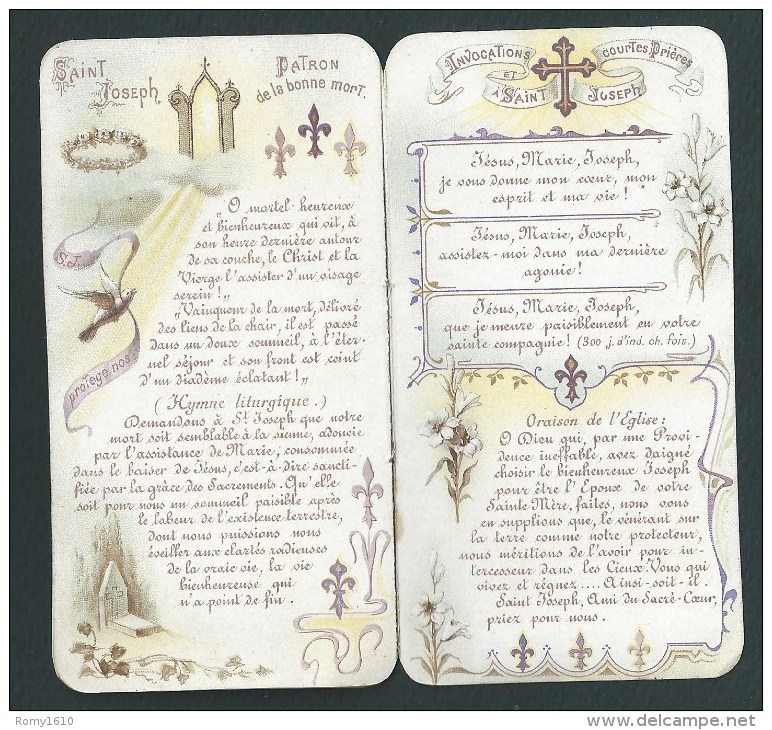 SAINT JOSEPH
PATRON
de la bonne mort.
S.J.
protège nos
"O mortel heureux
et bienheureux qui vit, à
son heure dernière autour
de sa couche, le Christ et la
Vierge l'assister d'un visage
serein!"
"Vainqueur de la mort, délivré
des liens de la chair, il est passé
dans un doux sommeil, à l'éter-
nel séjour et son front est ceint
d'un diadème éclatant!"
(Hymne liturgique.)
Demandons à St Joseph que notre
mort soit semblable à la sienne, adoucie
par l'assistance de Marie, consommée
dans le baiser de Jésus, c'est-à-dire sancti-
fiée par la grâce des Sacrements. Qu'elle
soit pour nous un sommeil paisible après
le labeur de l'existence terrestre,
dont nous puissions nous
éveiller aux clartés radieuses
de la vraie vie, la vie
bienheureuse qui
n'a point de fin.
INVOCATIONS ET COURTES PRIÈRES
A SAINT JOSEPH
Jésus, Marie, Joseph,
je vous donne mon cœur, mon
esprit et ma vie!
Jésus, Marie, Joseph,
assistez-moi dans ma dernière
agonie!
Jésus, Marie, Joseph,
que je meure paisiblement en votre
sainte compagnie! (300 j. d'ind. ch. fois.)
Oraison de l'Eglise:
O Dieu qui, par une Provi-
dence ineffable, avez daigné
choisir le bienheureux Joseph
pour être l'Epoux de votre
Sainte Mère, faites, nous vous
en supplions que, le vénérant sur
la terre comme notre protecteur,
nous méritions de l'avoir pour in-
tercesseur dans les Cieux. Vous qui
vivez et régnez.... Ainsi-soit-il.
Saint Joseph, Ami du Sacré-Cœur,
priez pour nous.
Romy1610